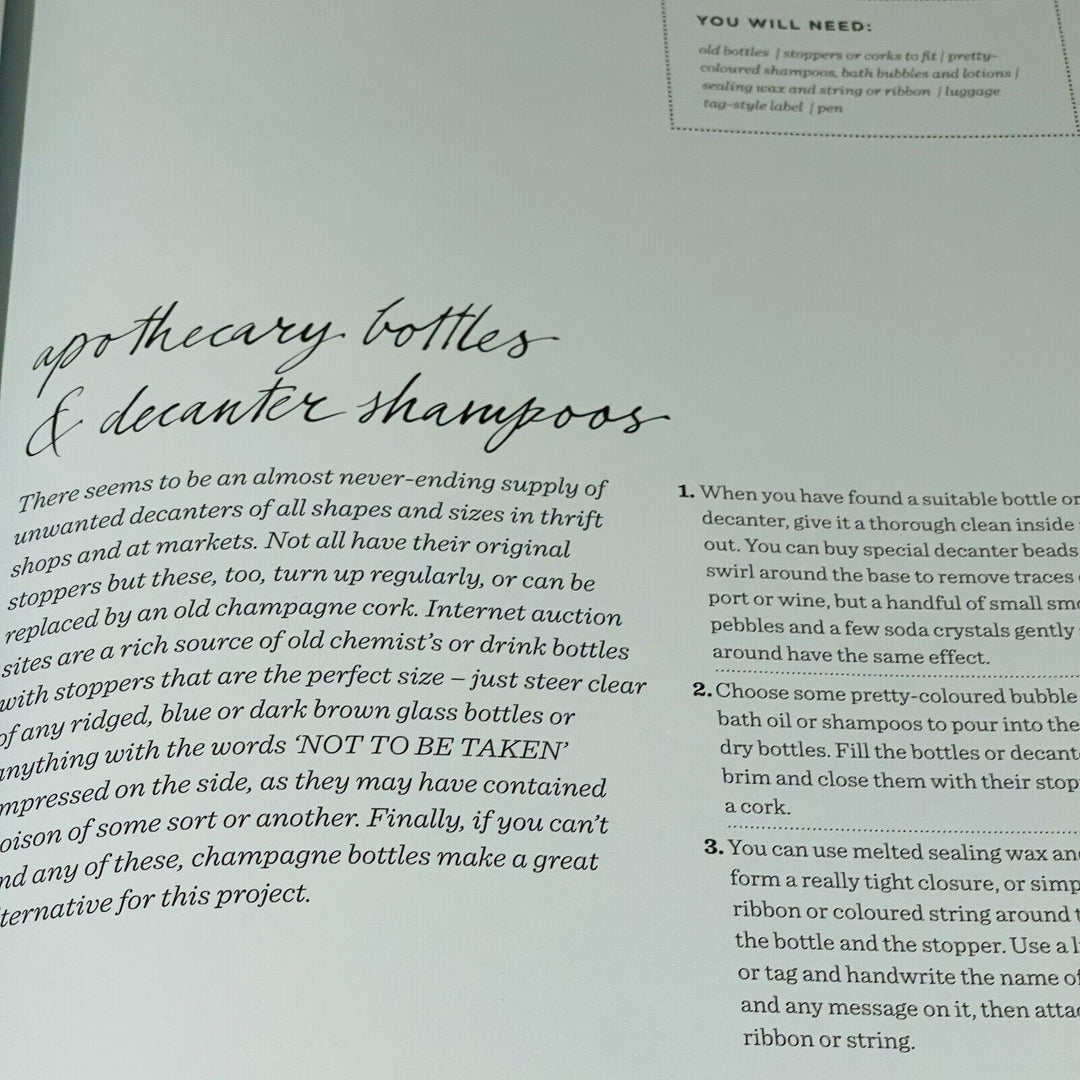 YOU WILL NEED:
old bottles | stoppers or corks to fit | pretty-
coloured shampoos, bath bubbles and lotions |
sealing wax and string or ribbon | luggage
tag-style label | pen
apothecary bottles
& decanter shampoos
There seems to be an almost never-ending supply of
unwanted decanters of all shapes and sizes in thrift
shops and at markets. Not all have their original
stoppers but these, too, turn up regularly, or can be
replaced by an old champagne cork. Internet auction
sites are a rich source of old chemist's or drink bottles
with stoppers that are the perfect size – just steer clear
of any ridged, blue or dark brown glass bottles or
anything with the words 'NOT TO BE TAKEN'
mpressed on the side, as they may have contained
oison of some sort or another. Finally, if you can't
nd any of these, champagne bottles make a great
ternative for this project.
1. When you have found a suitable bottle or
decanter, give it a thorough clean inside
out. You can buy special decanter beads
swirl around the base to remove traces
port or wine, but a handful of small smo
pebbles and a few soda crystals gently
around have the same effect.
2. Choose some pretty-coloured bubble
bath oil or shampoos to pour into the
dry bottles. Fill the bottles or decant
brim and close them with their stop
a cork.
3. You can use melted sealing wax an
form a really tight closure, or simp
ribbon or coloured string around t
the bottle and the stopper. Use a l
or tag and handwrite the name of
and any message on it, then atta
ribbon or string.